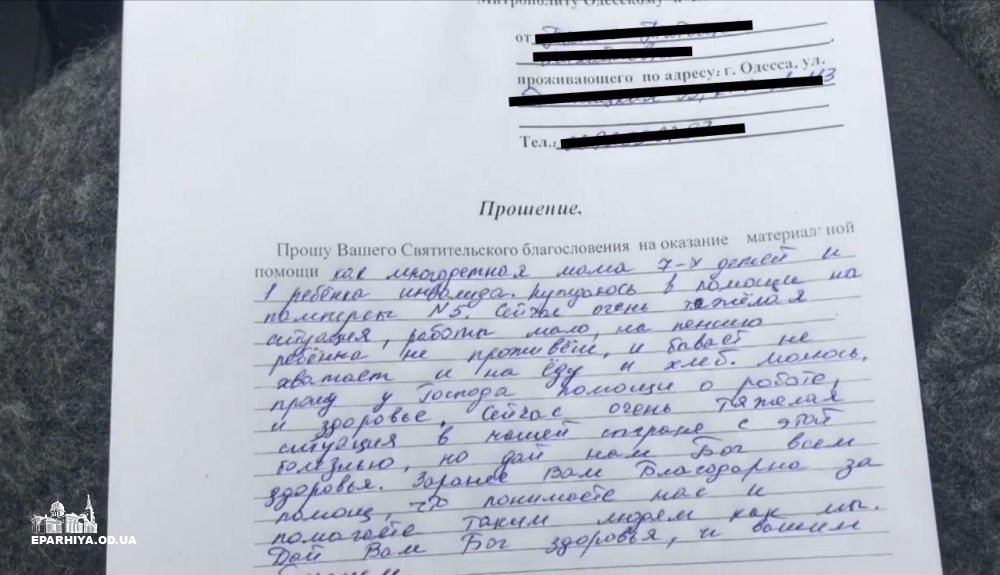 Митрополиту Одесскому и
от
проживающего по адресу: г. Одесса, ул.
Тел.:
Прошение.
Прошу Вашего Святительского благословения на оказание материальной
помощи как многодетная мама 7-х детей и
1 ребёнка инвалида. Нуждаюсь в помощи на
памперсы N5. Сейчас очень тяжёлая
ситуация, работы мало, на пенсию
ребёнка не проживёш, и бывает не
хватает и на еду и хлеб. молюсь,
прошу у Господа помощи о работе,
и здоровье. Сейчас очень тяжелая
ситуация в нашей стране с этой
болезнью, но дай нам Бог всем
здоровья. Заранее Вам Благодарна за
помощ, что понимаете нас и
помогаете таким людям как мы.
Дай Вам Бог здоровья, и вашим
EPARHIYA.OD.UA